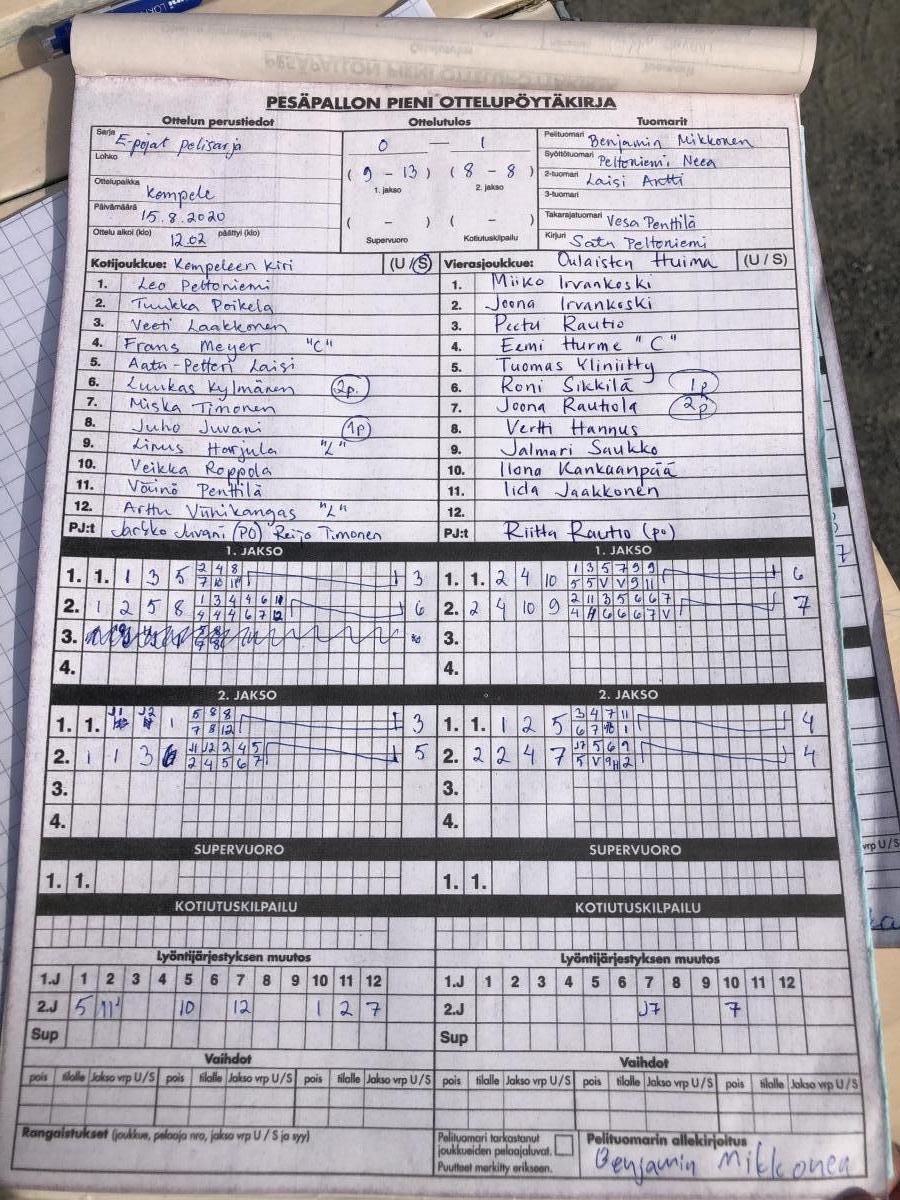 PESÄPALLON PIENI OTTELUPÖYTÄKIRJA
Ottelun perustiedot Ottelutulos Tuomarit
Sarja E-pojat pelisarja
Lohko
Ottelupaikka Kempele
Päivämäärä 15.8.2020
Ottelu alkoi (klo) 12.02 päättyi (klo)
0 — 1
( 9 – 13 ) ( 8 – 8 )
1. jakso 2. jakso
( – ) ( – )
Supervuoro Kotiutuskilpailu
Pelituomari Benjamin Mikkonen
Syöttötuomari Peltoniemi, Neea
2-tuomari Laisi Antti
3-tuomari
Takarajatuomari Vesa Penttilä
Kirjuri Satu Peltoniemi
Kotijoukkue: Kempeleen Kiri (U / S)
1. Leo Peltoniemi
2. Tuukka Poikela
3. Veeti Laakkonen
4. Frans Meyer "C"
5. Aatu-Petteri Laisi
6. Luukas Kylmänen 2p.
7. Miska Timonen
8. Juho Juvani 1p
9. Linus Harjula "L"
10. Veikka Roppola
11. Väinö Penttilä
12. Arttu Viinikangas "L"
PJ:t Jarkko Juvani (PO) Reijo Timonen
Vierasjoukkue: Oulaisten Huima (U / S)
1. Miiko Irvankoski
2. Joona Irvankoski
3. Peetu Rautio
4. Eemi Hurme "C"
5. Tuomas Yliniitty
6. Roni Sikkilä 1p
7. Joona Rautiola 2p
8. Vertti Hannus
9. Jalmari Saukko
10. Ilona Kankaanpää
11. Iida Jaakkonen
12.
PJ:t Riitta Rautio (po)
1. JAKSO 1. JAKSO
1. 1. 1 3 5 2 4 8 3
7 10 11
2. 1 2 5 8 1 3 4 4 6 11 6
4 4 4 6 7 12
3.
4.
1. 1. 2 4 10 1 3 5 7 9 9 6
5 5 V V 9 11
2. 2 4 10 9 2 11 3 5 6 6 7 7
4 6 6 6 7 V
3.
4.
2. JAKSO 2. JAKSO
1. 1. J1 J2 1 5 8 8 3
7 8 12
2. 1 1 3 6 11 12 2 4 5 5
2 4 5 6 7
3.
4.
1. 1. 1 2 5 3 4 7 11 4
6 7 10 1
2. 2 2 4 7 J7 5 6 9 4
5 V 9 2
3.
4.
SUPERVUORO SUPERVUORO
1. 1. 1. 1.
KOTIUTUSKILPAILU KOTIUTUSKILPAILU
Lyöntijärjestyksen muutos Lyöntijärjestyksen muutos
1.J 1 2 3 4 5 6 7 8 9 10 11 12 1.J 1 2 3 4 5 6 7 8 9 10 11 12
2.J 5 11 10 12 1 2 7 2.J J7 7
Sup Sup
Vaihdot Vaihdot
pois tilalle Jakso vrp U/S pois tilalle Jakso vrp U/S pois tilalle Jakso vrp U/S pois tilalle Jakso vrp U/S pois tilalle Jakso vrp U/S pois tilalle Jakso vrp U/S
Rangaistukset (joukkue, pelaaja nro, jakso vrp U / S ja syy)
Pelituomari tarkastanut
joukkueiden pelaajaluvat.
Puutteet merkitty erikseen.
Pelituomarin allekirjoitus
Benjamin Mikkonen